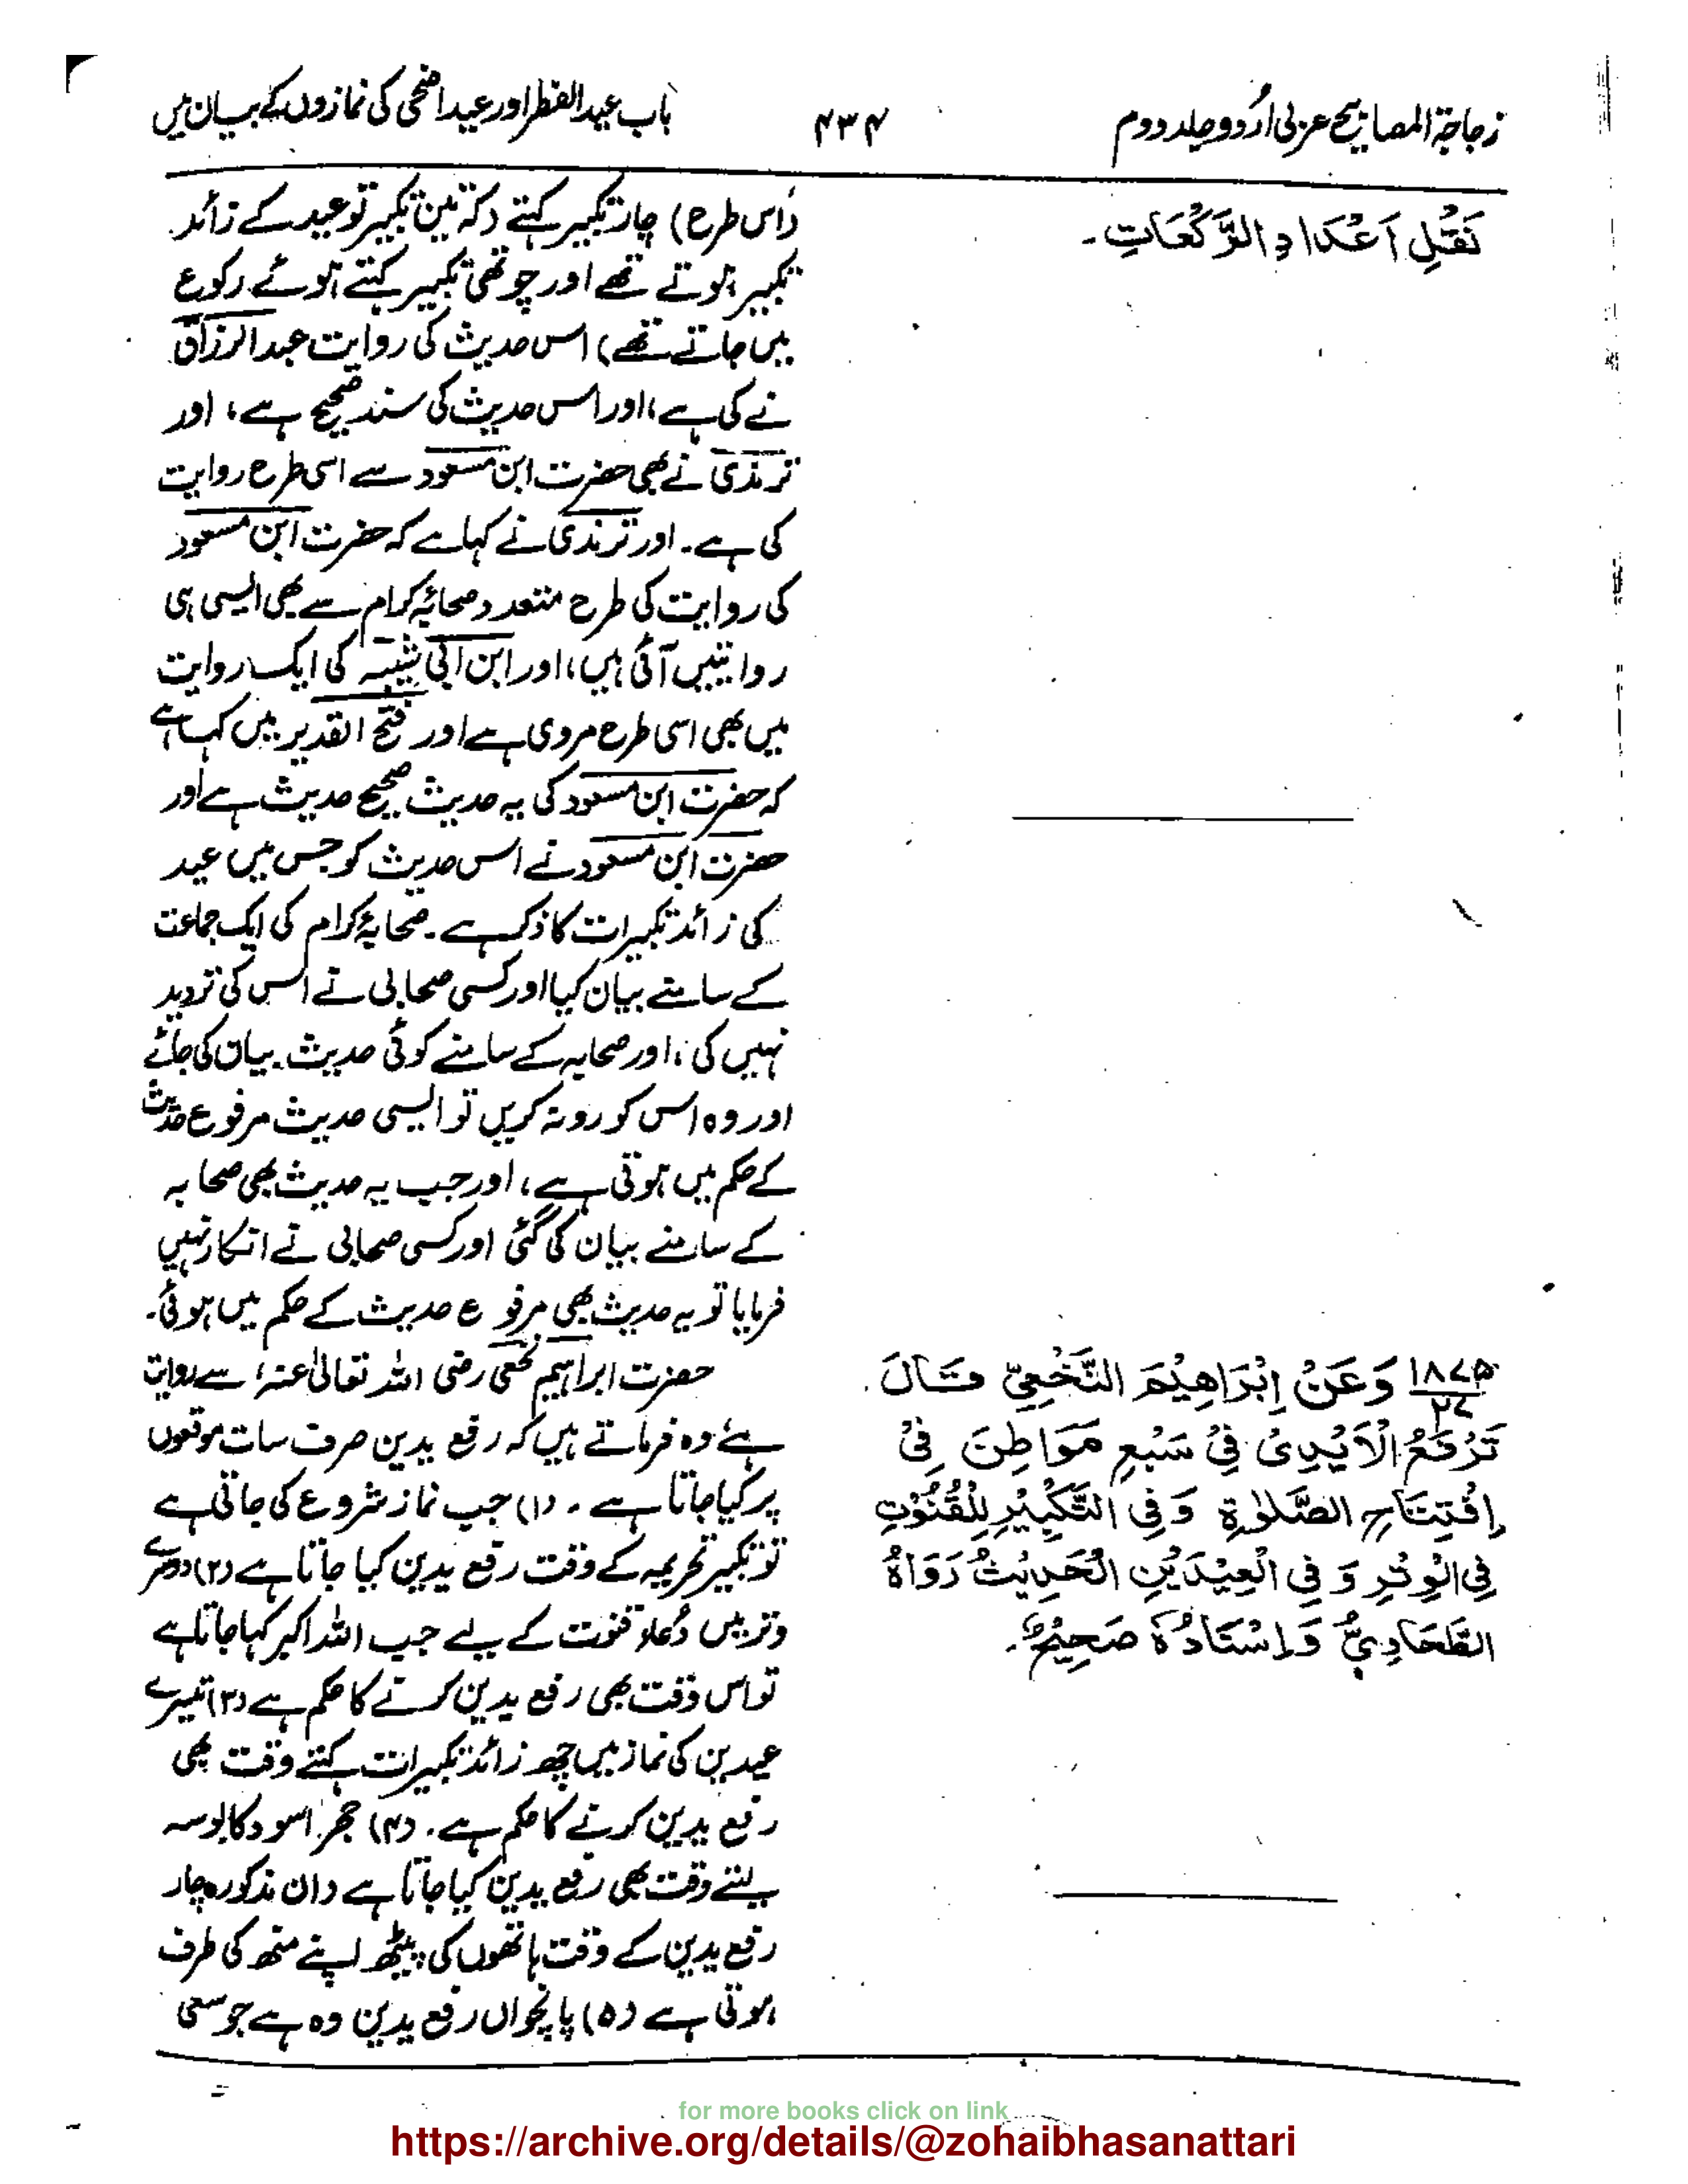 زجاجۃ المصابیح عربی اردو جلد دوم
۴۳۴
باب عید الفطر اور عید اضحی کی نمازوں کے بیان میں
نَقْلِ اَعْدَادِ الرَّكْعَاتِ۔
۱۸۷۵
۲۷
وَعَنْ اِبْرَاهِيْمَ النَّخْعِيِّ قَالَ
تَرْفَعُ الْاَيْدِىْ فِيْ سَبْعِ مَوَاطِنَ فِىْ
اِفْتِتَاحِ الصَّلٰوةِ وَفِى التَّكْبِيْرِ لِلْقُنُوْتِ
فِى الْوِتْرِ وَفِى الْعِيْدَيْنِ الْحَدِيْثُ رَوَاهُ
الطَّحَاوِيُّ وَاِسْنَادُهٗ صَحِيْحٌ۔
(اس طرح) چار تکبیر کہتے (کہ تین تکبیر تو عید کے زائد
تکبیر ہوتے تھے اور چوتھی تکبیر کہتے ہوئے رکوع
میں جاتے تھے) اس حدیث کی روایت عبدالرزاق
نے کی ہے، اور اس حدیث کی سند صحیح ہے، اور
ترمذی نے بھی حضرت ابن مسعود سے اسی طرح روایت
کی ہے۔ اور ترمذی نے کہا ہے کہ حضرت ابن مسعود
کی روایت کی طرح متعدد صحابۂ کرام سے بھی ایسی ہی
روایتیں آئی ہیں، اور ابن ابی شیبہ کی ایک روایت
میں بھی اسی طرح مروی ہے اور فتح القدیر میں کہا ہے
کہ حضرت ابن مسعود کی یہ حدیث صحیح حدیث ہے اور
حضرت ابن مسعود نے اس حدیث کو جس میں عید
کی زائد تکبیرات کا ذکر ہے۔ صحابۂ کرام کی ایک جماعت
کے سامنے بیان کیا اور کسی صحابی نے اس کی تردید
نہیں کی، اور صحابہ کے سامنے کوئی حدیث بیان کی جائے
اور وہ اس کو رد نہ کریں تو ایسی حدیث مرفوع حدیث
کے حکم میں ہوتی ہے، اور جب یہ حدیث بھی صحابہ
کے سامنے بیان کی گئی اور کسی صحابی نے انکار نہیں
فرمایا تو یہ حدیث بھی مرفوع حدیث کے حکم میں ہوئی۔
حضرت ابراہیم نخعی رضی اللہ تعالیٰ عنہ، سے روایت
ہے وہ فرماتے ہیں کہ رفع یدین صرف سات موقعوں
پر کیا جاتا ہے۔ (۱) جب نماز شروع کی جاتی ہے
تو تکبیر تحریمہ کے وقت رفع یدین کیا جاتا ہے (۲) دوسرے
وتر میں دُعاء قنوت کے لیے جب اللہ اکبر کہا جاتا ہے
تو اس وقت بھی رفع یدین کرنے کا حکم ہے (۳) تیسرے
عیدین کی نماز میں چھ زائد تکبیرات کہتے وقت بھی
رفع یدین کرنے کا حکم ہے۔ (۴) حجر اسود کا بوسہ
لیتے وقت بھی رفع یدین کیا جاتا ہے (ان مذکورہ چار
رفع یدین کے وقت ہاتھوں کی پیٹھ اپنے منھ کی طرف
ہوتی ہے (۵) پانچواں رفع یدین وہ ہے جو سعی
for more books click on link
https://archive.org/details/@zohaibhasanattari